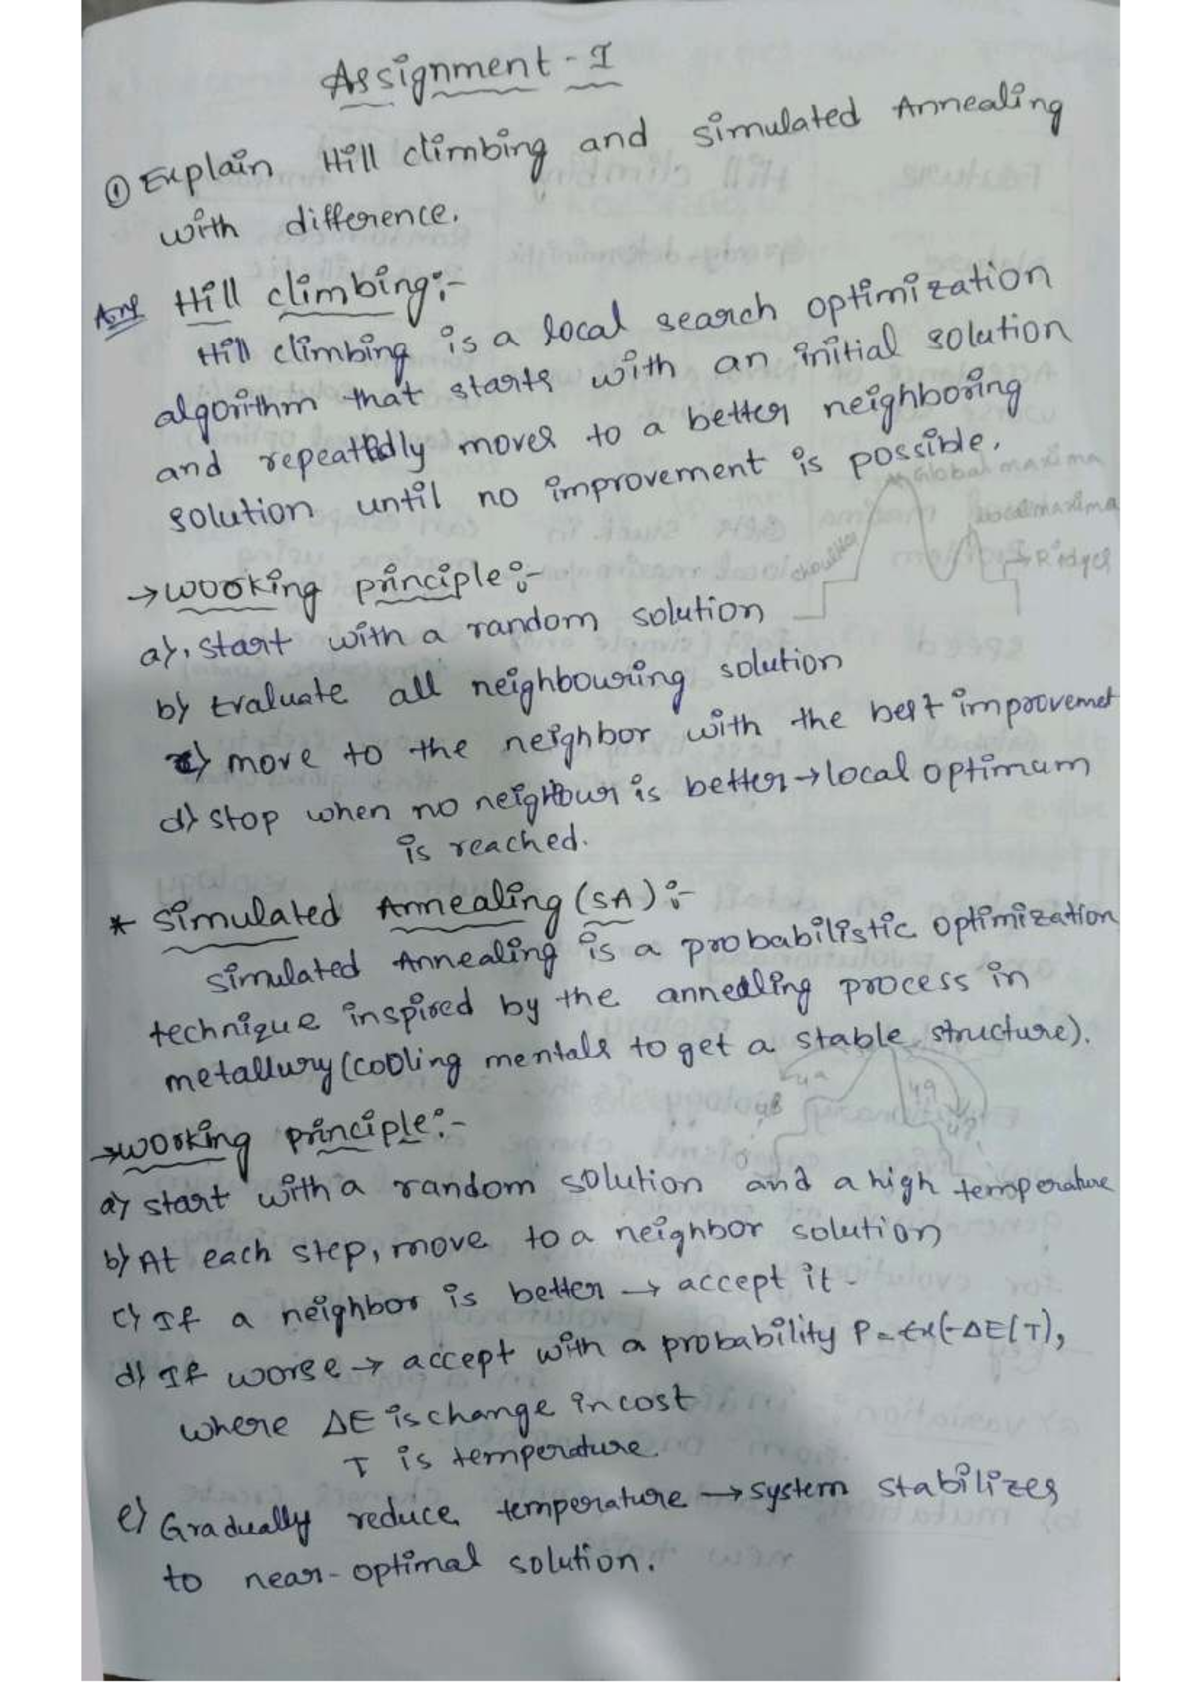 Assignment - I
① Explain Hill climbing and simulated Annealing
with difference.
Ans Hill climbing:-
Hill climbing is a local search optimization
algorithm that starts with an initial solution
and repeattedly moves to a better neighboring
solution until no improvement is possible.
Global maxima
local maxima
shoulder
Ridges
→ working principle:-
a) start with a random solution
b) Evaluate all neighbouring solution
c) move to the neighbor with the best improvemet
d) stop when no neighbour is better → local optimum
is reached.
* Simulated Annealing (SA):-
Simulated Annealing is a probabilistic optimization
technique inspired by the annealing process in
metallury (cooling mentals to get a stable structure).
→ working principle:-
a) start with a random solution and a high temperature
b) At each step, move to a neighbor solution
c) If a neighbor is better → accept it.
d) If worse → accept with a probability P = Ex(-ΔE/T),
where ΔE is change in cost
T is temperature.
e) Gradually reduce temperature → system stabilizes
to near-optimal solution.